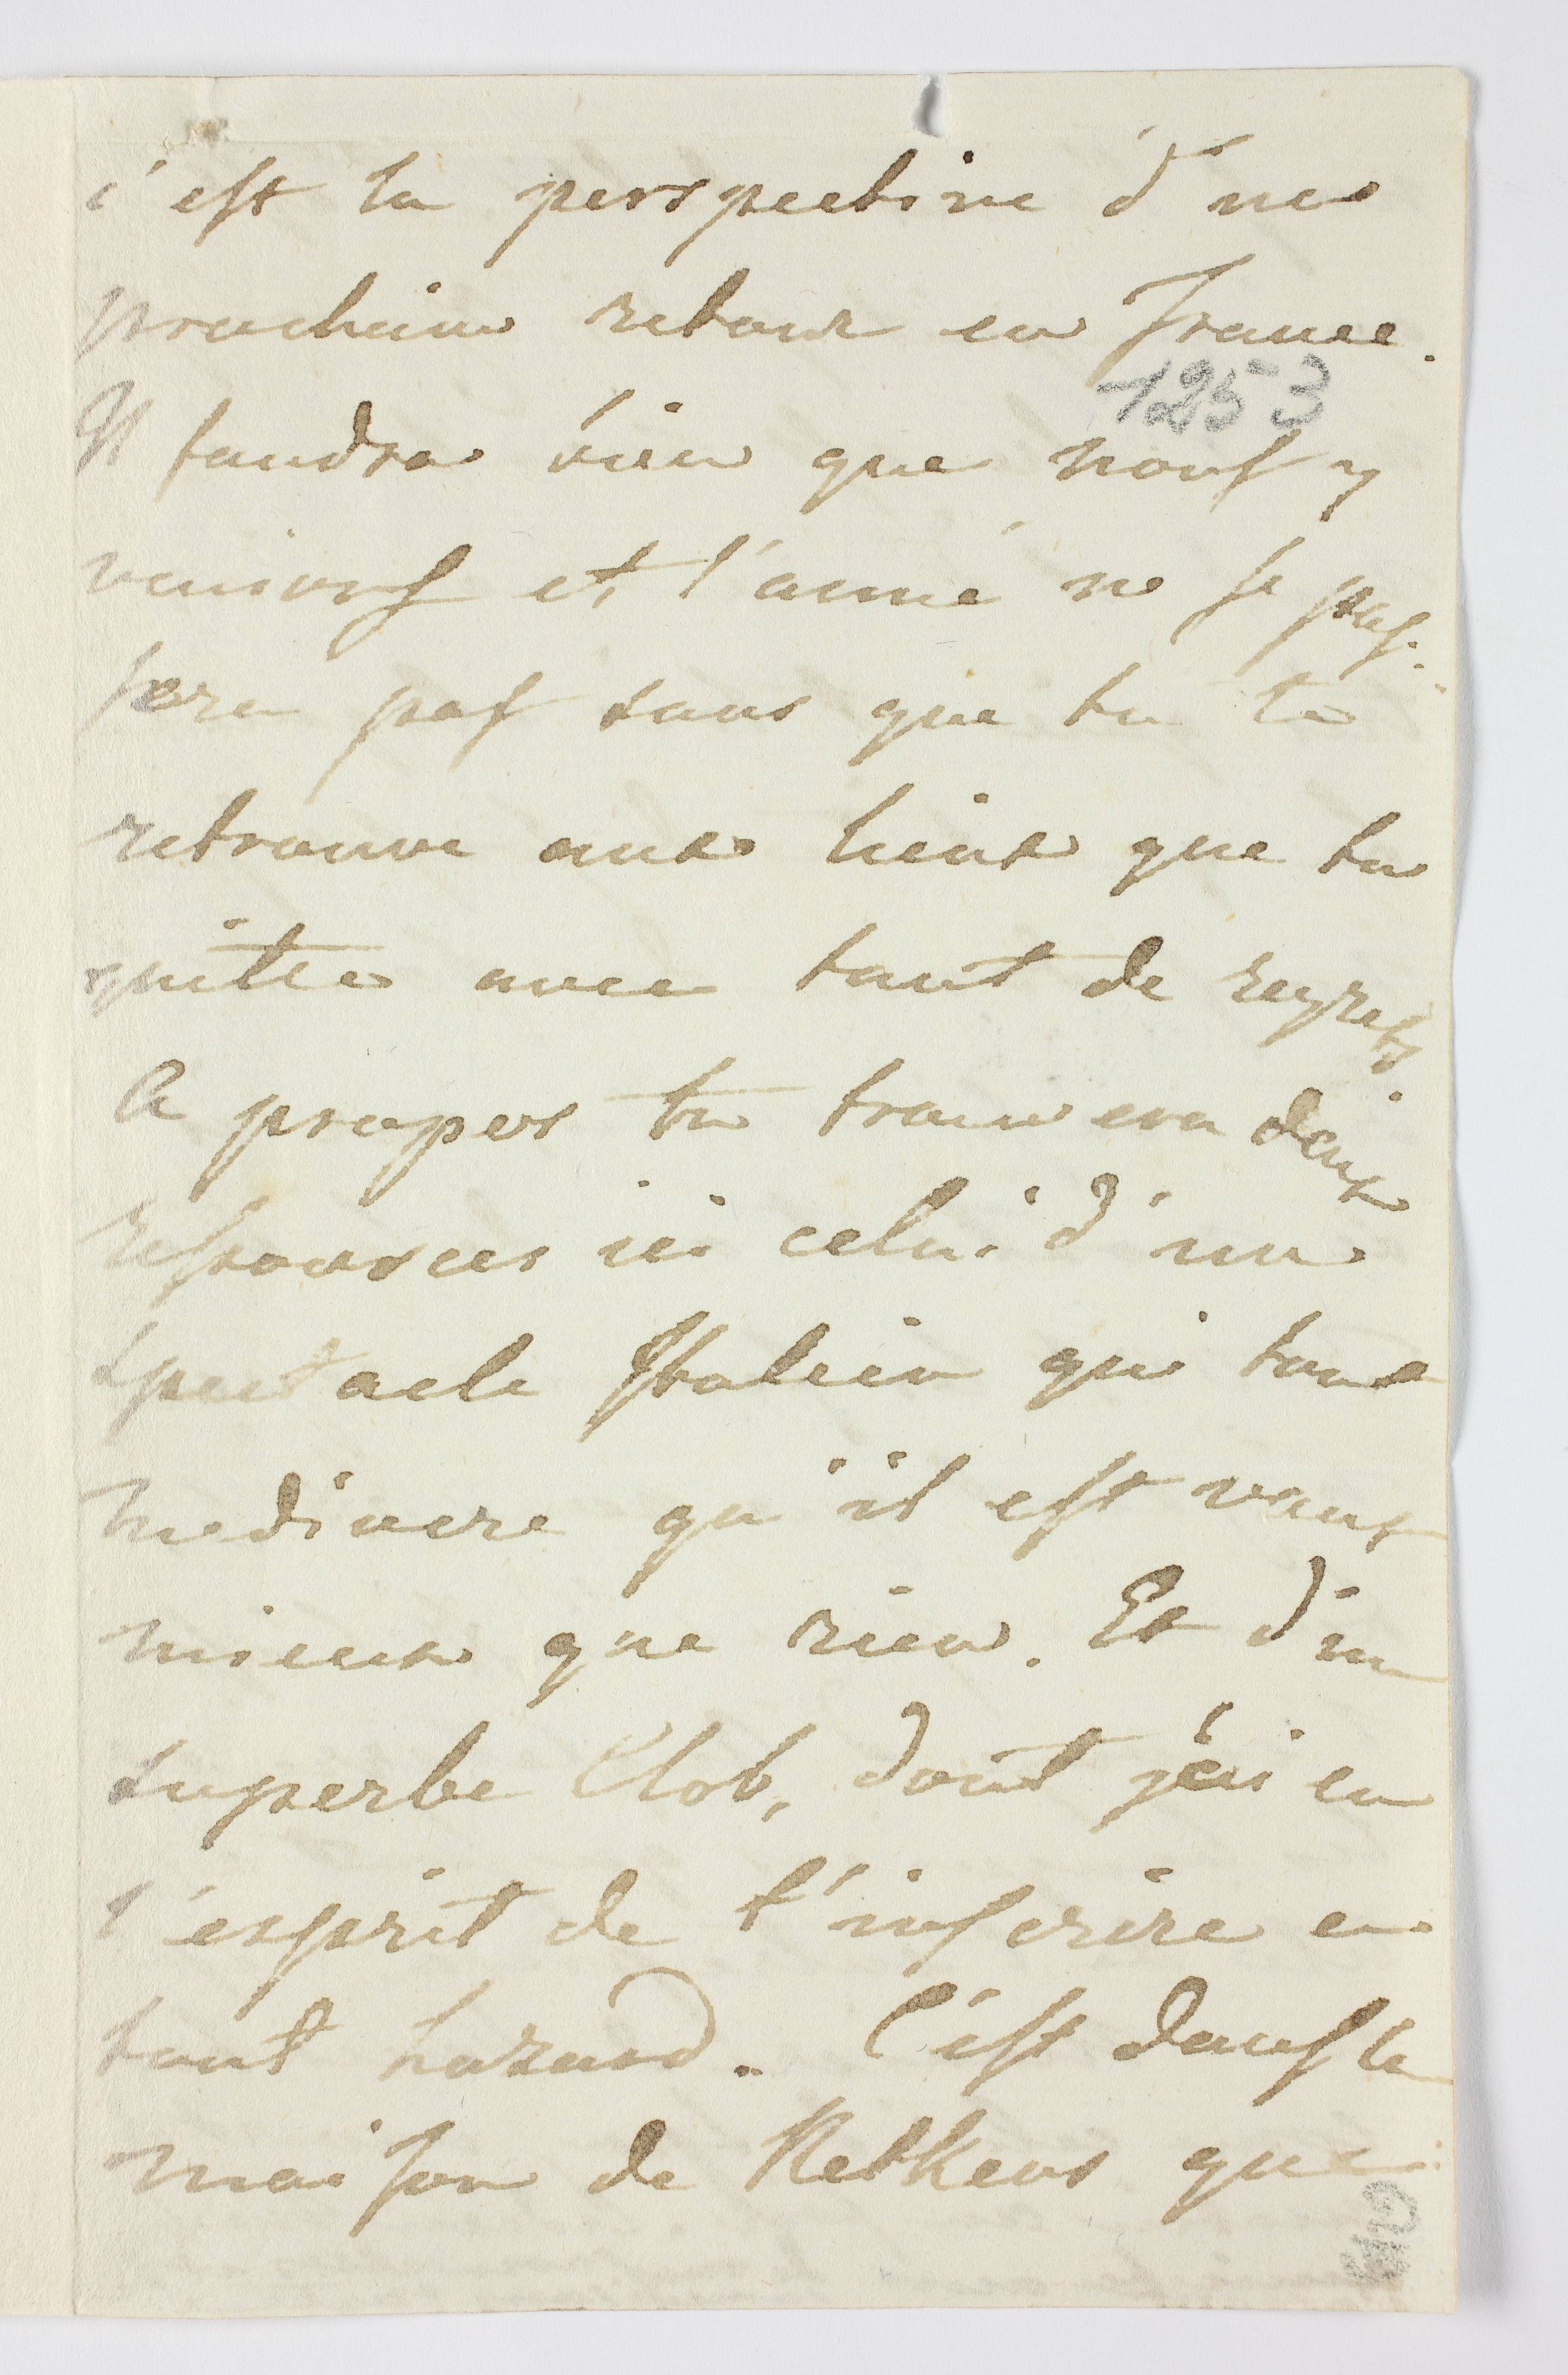 c'est la perspective d'un
prochain retour en France.
1253
Il faudra bien que nous y
venions et l'année ne se pas-
sera pas sans que tu te
retrouve aux lieux que tu
quitte avec tant de regrets.
A propos tu trouvera deux
ressources ici celui d'un
spectacle Italien qui tout
mediocre qu'il est vaux
mieux que rien. Et d'un
superbe Clob, dont j'ai eu
l'esprit de t'inscrire en
tout hazard. C'est dans la
maison de Retkens que